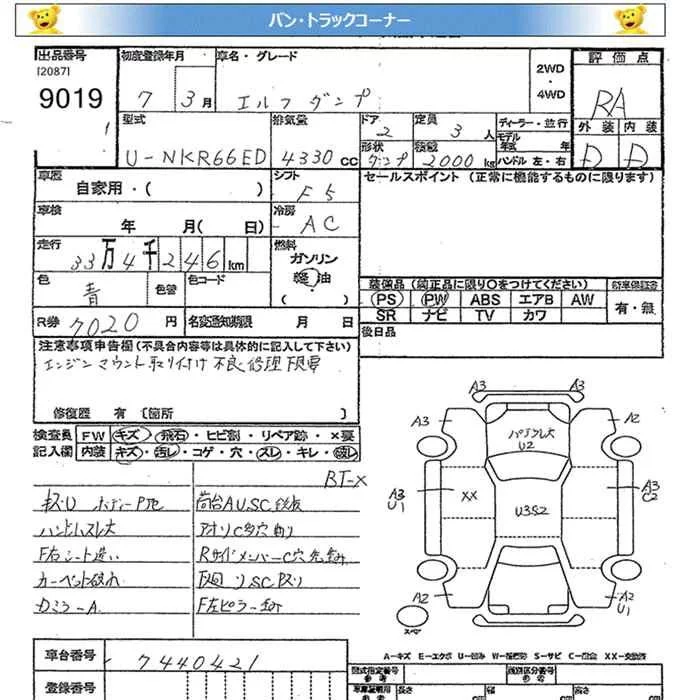 バン・トラックコーナー
出品番号
[2087]
9019
初度登録年月
7 3月
車名・グレード
エルフダンプ
2WD
・
4WD
評価点
RA
外装 内装
D D
型式
U-NKR66ED
排気量
4330cc
ドア
2
定員
3人
形状
ダンプ
積載
2000kg
ディーラー・並行
モデル年式 年
ハンドル 左・右
車歴
自家用・( )
シフト
F5
セールスポイント (正常に機能するものに限ります)
車検
年 月( 日)
冷房
AC
走行
33万4千246km
燃料
ガソリン
軽油
色
青
色替
色コード
装備品(純正品に限り○をつけてください)
PS PW ABS エアB AW
SR ナビ TV カワ
新車保証書
有・無
R券 7020円
名変通知期限 月 日
後日品
注意事項申告欄(不具合内容等は具体的に記入して下さい)
エンジンマウント取り付け不良修理
修復歴 有 〔箇所 〕
検査員記入欄
FW キズ・飛石・ヒビ割・リペア跡・×要
内装 キズ・汚レ・コゲ・穴・スレ・キレ・破レ
BT-X
キズU
ハンドルスレ大
F右シート違い
カーペット破れ
DミラーA
荷台AU,SC鉄板
アオリC多穴曲り
RサイドメンバーC穴
下廻りSC
A3 A3
A3 A2
U2
A3
U1
XX
U3S2
A3
C2
A2 A2
U1
A-キズ E-エクボ U-凹み W-補修跡 S-サビ C-腐食 XX-交換済
車台番号
7440421
登録番号
型式指定番号
参考
類別区分番号
参考
長さ cm
幅 cm
高さ cm